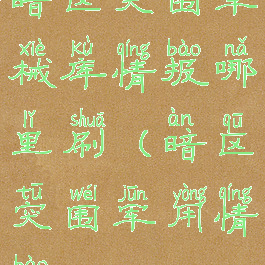 暗区突围军
xiè kù qíng bào nǎ
械库情报哪
lǐ shuā àn qū
里刷（暗区
tū wéi jūn yòng qíng
突围军用情
bào